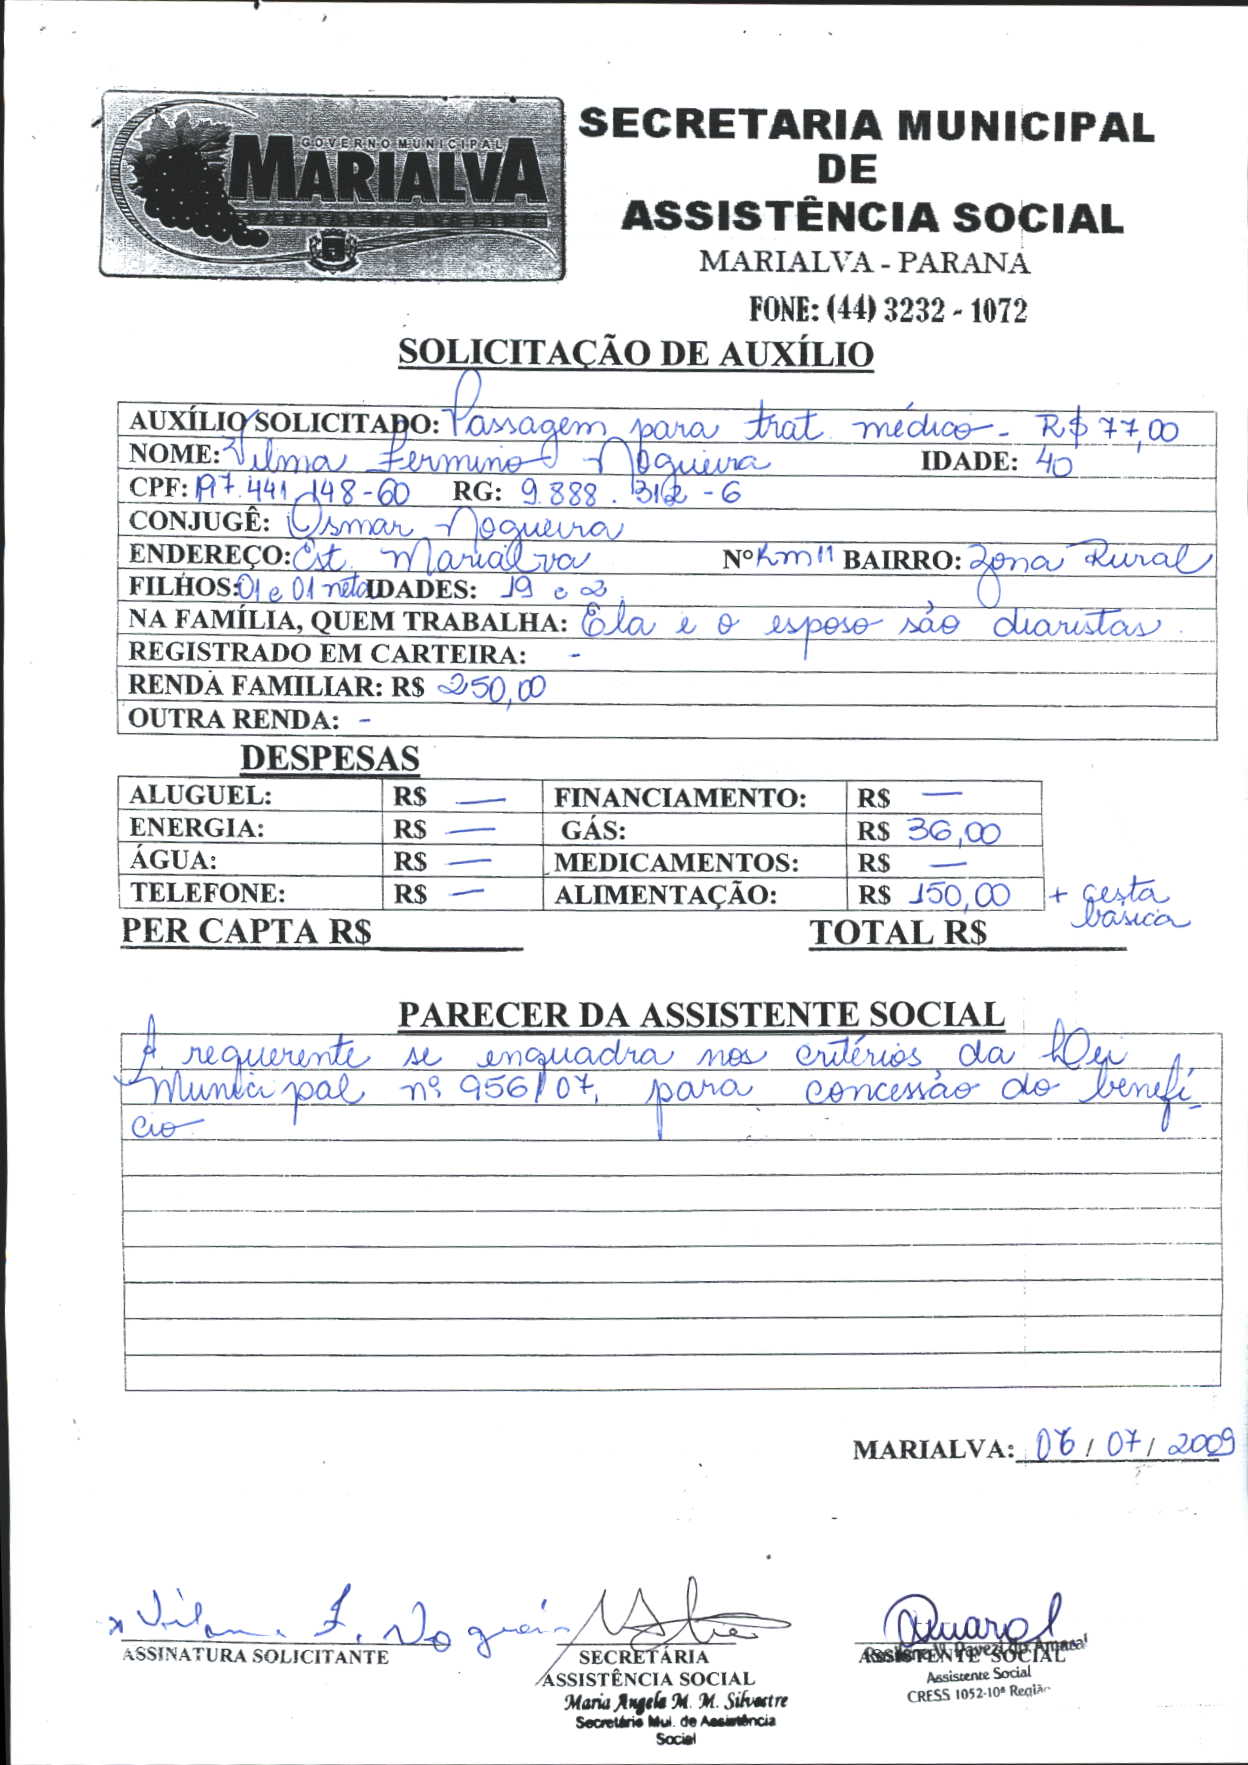 GOVERNO MUNICIPAL
MARIALVA
SECRETARIA MUNICIPAL
DE
ASSISTÊNCIA SOCIAL
MARIALVA - PARANÁ
FONE: (44) 3232 - 1072
SOLICITAÇÃO DE AUXÍLIO
AUXÍLIO SOLICITADO: Passagem para trat. médico - R$ 77,00
NOME: Vilma Fermino Nogueira IDADE: 40
CPF: 197.441.148-60 RG: 9.888.312-6
CONJUGÊ: Osmar Nogueira
ENDEREÇO: Est. Marialva Nº Km 11 BAIRRO: Zona Rural
FILHOS: 01 e 01 neta IDADES: 19 e 2
NA FAMÍLIA, QUEM TRABALHA: Ela e o esposo são diaristas.
REGISTRADO EM CARTEIRA: -
RENDA FAMILIAR: R$ 250,00
OUTRA RENDA: -
DESPESAS
ALUGUEL: R$ — FINANCIAMENTO: R$ —
ENERGIA: R$ — GÁS: R$ 36,00
ÁGUA: R$ — MEDICAMENTOS: R$ —
TELEFONE: R$ — ALIMENTAÇÃO: R$ 150,00 + cesta
básica
PER CAPTA R$ TOTAL R$
PARECER DA ASSISTENTE SOCIAL
A requerente se enquadra nos critérios da Lei
Municipal nº 956/07, para concessão do benefí-
cio
MARIALVA: 06 / 07 / 2009
x Vilma F. Nogueira
ASSINATURA SOLICITANTE
SECRETÁRIA
ASSISTÊNCIA SOCIAL
Maria Angela M. M. Silvestre
Secretária Mui. de Assistência
Social
Amaral
ASSISTENTE SOCIAL
Pavezi do Amaral
Assistente Social
CRESS 1052-10ª Região